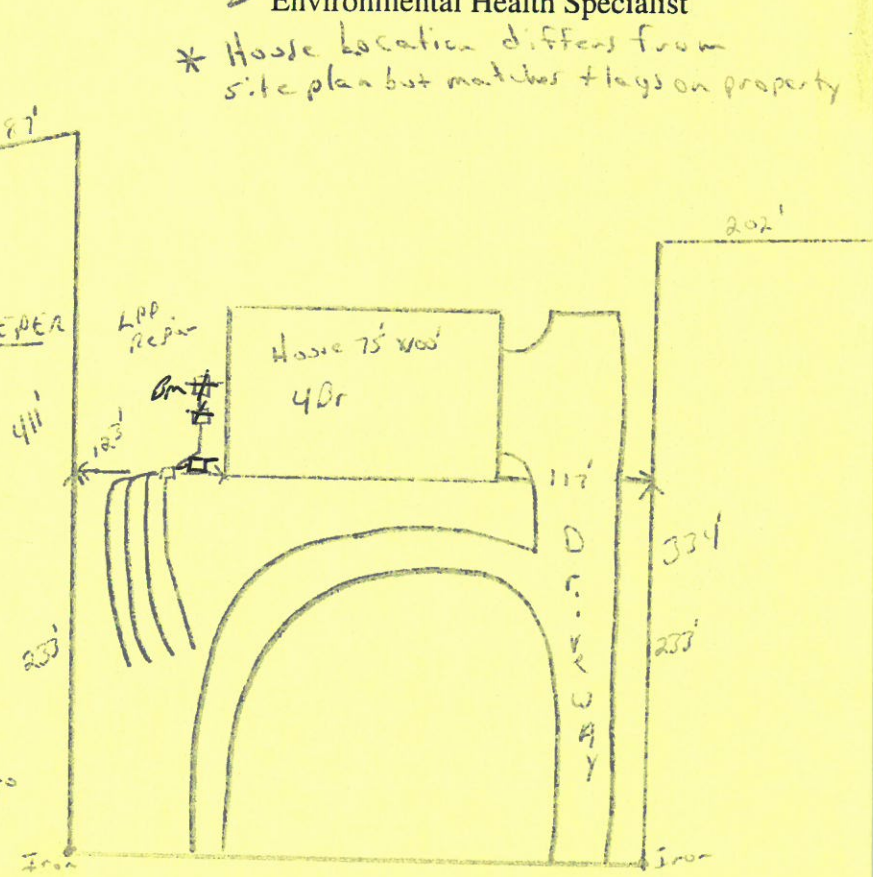 Environmental Health Specialist
* House Location differs from
site plan but matches flags on property
87'
202'
LPP
Repair
House 75' x100'
4Br
Bm
411'
123'
117'
334'
Driveway
233'
233'
Iron
Iron